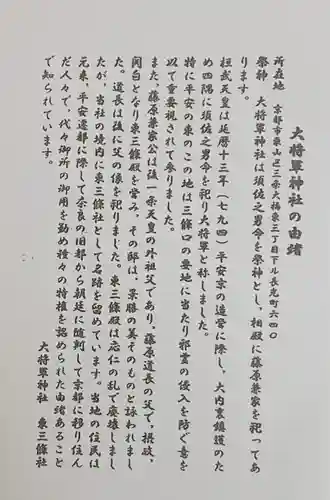 大将軍神社の由緒
所在地　京都市東山区三条大橋東三丁目下ル長光町六四〇
祭神　大将軍神社は須佐之男命を祭神とし、相殿に藤原兼家を祀ってあ
ります。
桓武天皇は延暦十三年（七九四）平安京の造営に際し、大内裏鎮護のた
め四隅に須佐之男命を祀り大将軍と称しました。
特に平安の東のこの地は三條口の要地に当たり邪霊の侵入を防ぐ意を
以て重要視されて参りました。
また、藤原兼家公は後一条天皇の外祖父であり、藤原道長の父で、摂政、
関白となり東三條殿を営み、その邸は、景勝の美そのものと詠われまし
た。道長は後に父の像を祀りました。東三條殿は応仁の乱で廃壊しまし
たが、当社の境内に東三條社として名跡を留めています。当地の住民は
元来、平安遷都に際して奈良の旧都から朝廷に随判して京都に移り住ん
だ人々で、代々御所の御用を勤め種々の特権を認められた由緒あること
で知られています。
大将軍神社　東三條社